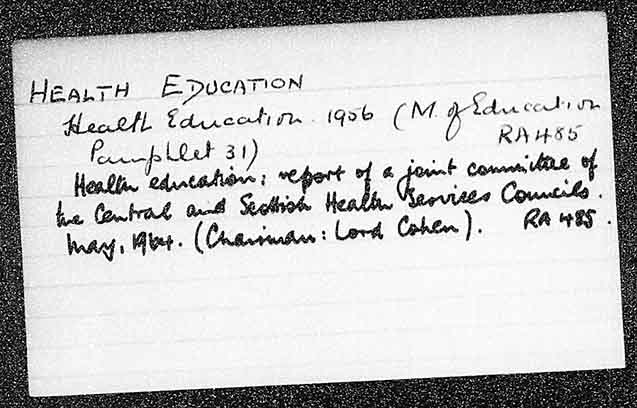 HEALTH EDUCATION
Health Education. 1956 (M. of Education
Pamphlet 31) RA485
Health education; report of a joint committee of
the Central and Scottish Health Services Councils.
May, 1964. (Chairman: Lord Cohen). RA 485.